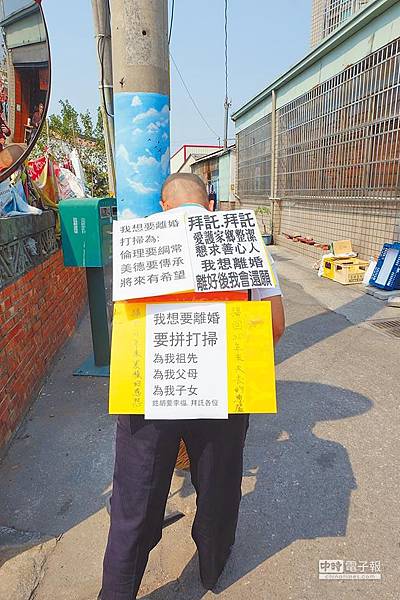 我想要離婚
打掃為:
倫理要綱常
美德要傳承
將來有希望
拜託.拜託
愛護家鄉整潔
懇求善心人
我想離婚
離好後我會還願
我想要離婚
要拼打掃
為我祖先
為我父母
為我子女
中時電子報